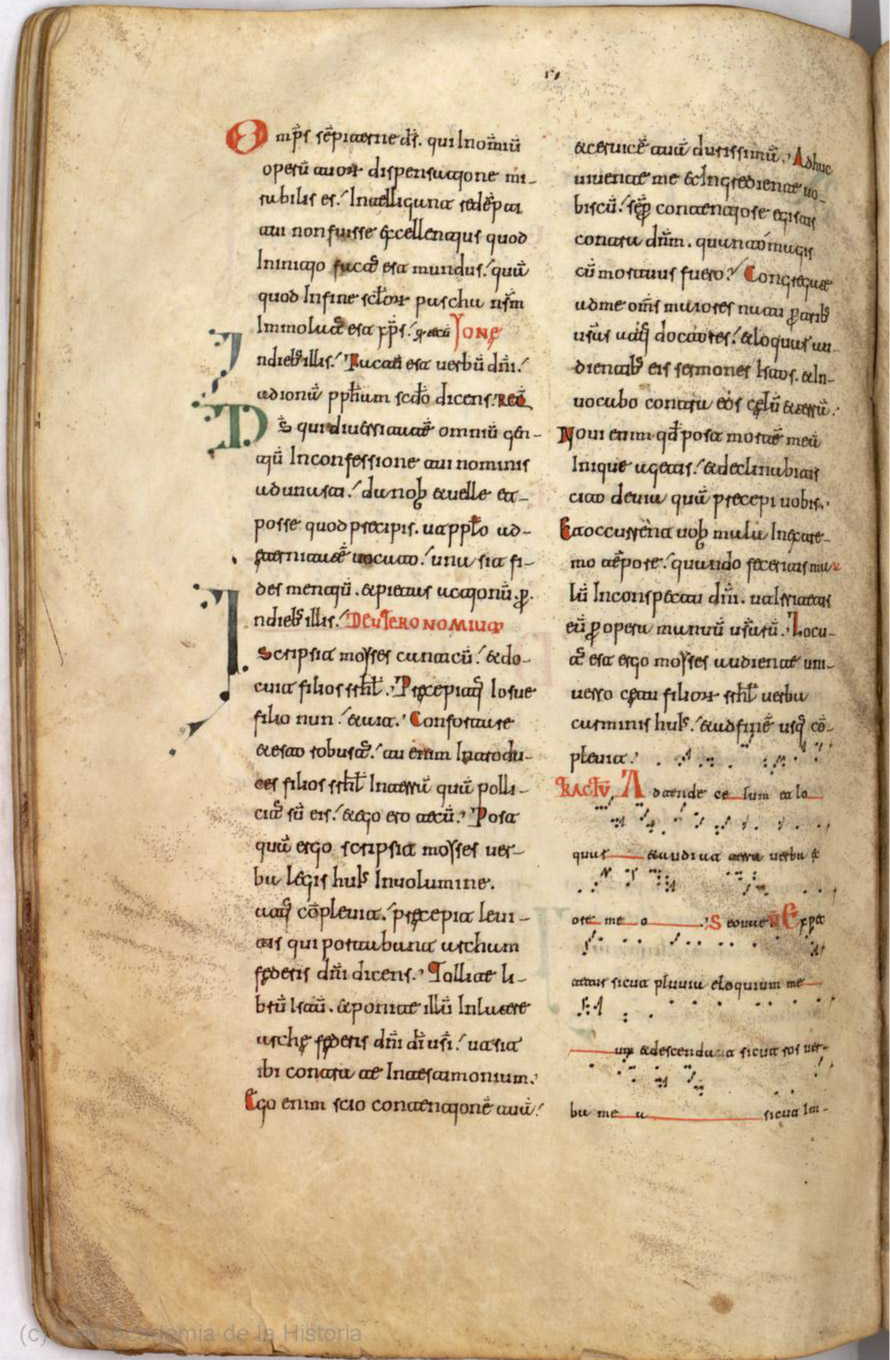 Omp̄s sēpiterne dş̄. qui In om̄iū
operū tuor̄ dispensatione mi-
rabilis es. Intelligant redēpti
tui non fuisse excellentius quod
Initio factū est mundus. quā
quod Infine sc̄lor̄ pascha nsm̄
Immolatus est xp̄s. qui tecū Ione
Indieb illis. Factū est uerbū dn̄i.
ad ionā pphm̄ scdō dicens. Req̄
Ds̄ qui diuersitatē omniū gen-
tiū In confessione tui nominis
adunasti. da nob̄ & uelle et
posse quod precipis. ut apptō ad
eternitatē uocato. una sit fi-
des mentiū. & pietas actionū. p.
Indieb illis. DEUTERONOMIUM
Scripsit moyses canticū. & do-
cuit filios isrhl̄. Precepitq̄ Iosue
filio nun. & ait. Confortare
& esto robustus. tu enim Introdu-
ces filios isrhl̄ In terrā quā polli-
citus sū eis. & ego ero tecū. Post
quā ergo scripsit moyses uer-
ba legis hui Inuolumine.
atq̄ cōpleuit. precepit leui-
tis qui portabant archam
federis dn̄i dicens. Tollite li-
brū istū. & ponite illū In latere
arche federis dn̄i dī usī. ut sit
ibi contra te In testimonium.
Ego enim scio contentionē tuā.
& ceruicē tuā durissimā. Adhuc
uiuente me & Ingrediente uo-
biscū. semp̄ contentiose egistis
contra dn̄m. quanto magis
cū mortuus fuero. Congregate
ad me om̄s maiores natu p̄ trib̄
usās atq̄ doctores. & loquar au-
dientib̄ eis sermones Istos. & In-
uocabo contra eōs celū & terrā.
Noui enim qđ post mortē meā
Inique agetis. & declinabitis
cito deuia quā precepi uobis.
Et occurrent uob̄ mala In extre-
mo tēpore. quando feceritis ma-
lū Inconspectu dn̄i. ut Irritetis
eū p̄ opera manuū usāsū. Locu-
tus est ergo moyses audiente uni-
uerso cetu filior̄ isrhl̄ uerba
carminis huis. & ad finē usq̄ cō-
pleuit.
TRACTUS Adtende ce lum et lo
quar & audiat terra uerba ex
ore me o Sicut Expec
tetur sicut pluuia eloquium me
um & descendat sicut ros uer-
ba me a sicut Im-
(c) Real Academia de la Historia